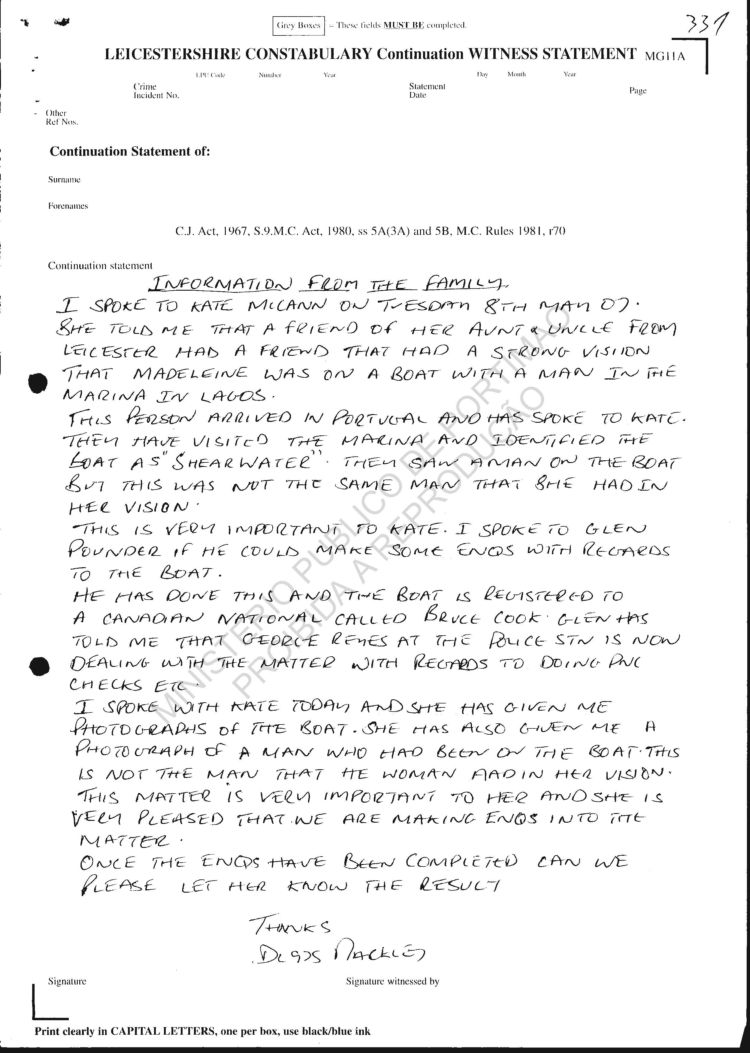 Grey Boxes – These fields MUST BE completed.
331
LEICESTERSHIRE CONSTABULARY Continuation WITNESS STATEMENT MG11A
LPU Code Number Year Day Month Year
Crime Statement
Incident No. Date Page
Other
Ref Nos.
Continuation Statement of:
Surname
Forenames
C.J. Act, 1967, S.9.M.C. Act, 1980, ss 5A(3A) and 5B, M.C. Rules 1981, r70
Continuation statement
INFORMATION FROM THE FAMILY
I SPOKE TO KATE MCCANN ON TUESDAY 8TH MAY 07.
SHE TOLD ME THAT A FRIEND OF HER AUNT & UNCLE FROM
LEICESTER HAD A FRIEND THAT HAD A STRONG VISIION
THAT MADELEINE WAS ON A BOAT WITH A MAN IN THE
MARINA IN LAGOS.
THIS PERSON ARRIVED IN PORTUGAL AND HAS SPOKE TO KATE.
THEY HAVE VISITED THE MARINA AND IDENTIFIED THE
BOAT AS "SHEARWATER". THEY SAW A MAN ON THE BOAT
BUT THIS WAS NOT THE SAME MAN THAT SHE HAD IN
HER VISION.
THIS IS VERY IMPORTANT TO KATE. I SPOKE TO GLEN
POUNDER IF HE COULD MAKE SOME ENQS WITH REGARDS
TO THE BOAT.
HE HAS DONE THIS AND THE BOAT IS REGISTERED TO
A CANADIAN NATIONAL CALLED BRUCE COOK. GLEN HAS
TOLD ME THAT GEORGE REYES AT THE POLICE STN IS NOW
DEALING WITH THE MATTER WITH REGARDS TO DOING PNC
CHECKS ETC.
I SPOKE WITH KATE TODAY AND SHE HAS GIVEN ME
PHOTOGRAPHS OF THE BOAT. SHE HAS ALSO GIVEN ME A
PHOTOGRAPH OF A MAN WHO HAD BEEN ON THE BOAT. THIS
IS NOT THE MAN THAT HE WOMAN HAD IN HER VISION.
THIS MATTER IS VERY IMPORTANT TO HER AND SHE IS
VERY PLEASED THAT WE ARE MAKING ENQS INTO THE
MATTER.
ONCE THE ENQS HAVE BEEN COMPLETED CAN WE
PLEASE LET HER KNOW THE RESULT
THANKS
MINISTERIO PUBLICO DE PORTIMAO
PROIBIDA A REPRODUÇÃO
Signature Signature witnessed by
Print clearly in CAPITAL LETTERS, one per box, use black/blue ink